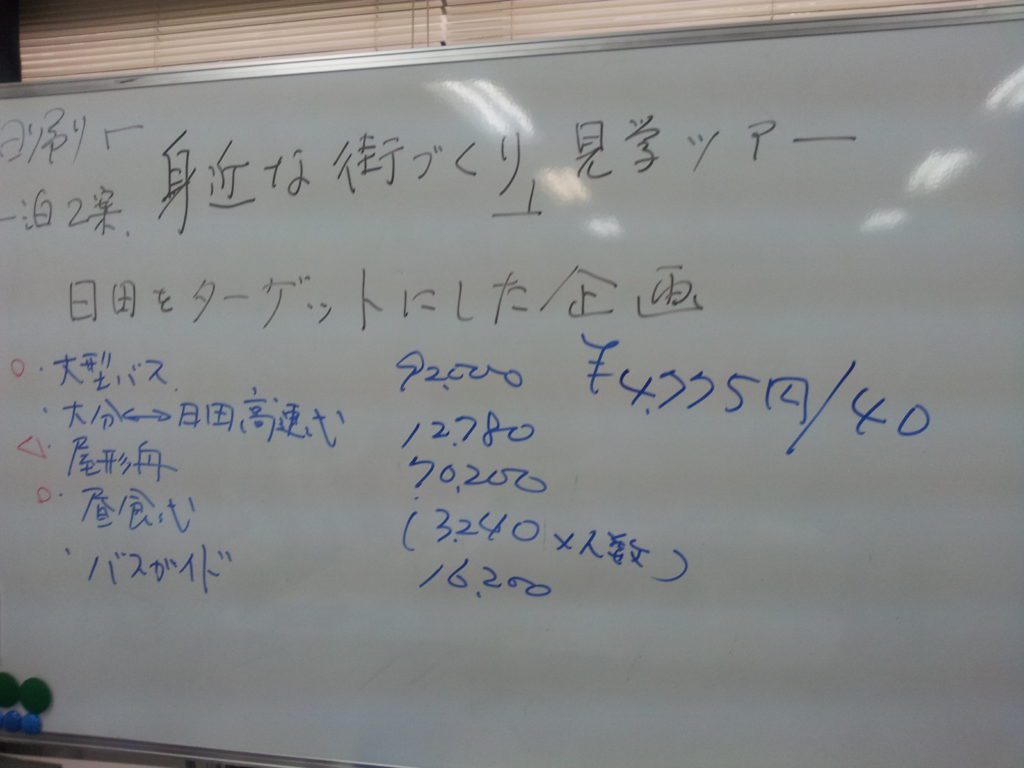 日帰り「身近な街づくり」見学ツアー
一泊2案.
日田をターゲットにした企画
○・大型バス 92,000 ¥4,775円/40
・大分↔日田高速代 12,780
△・屋形舟 70,200
○・昼食代 (3,240×人数)
・バスガイド 16,200